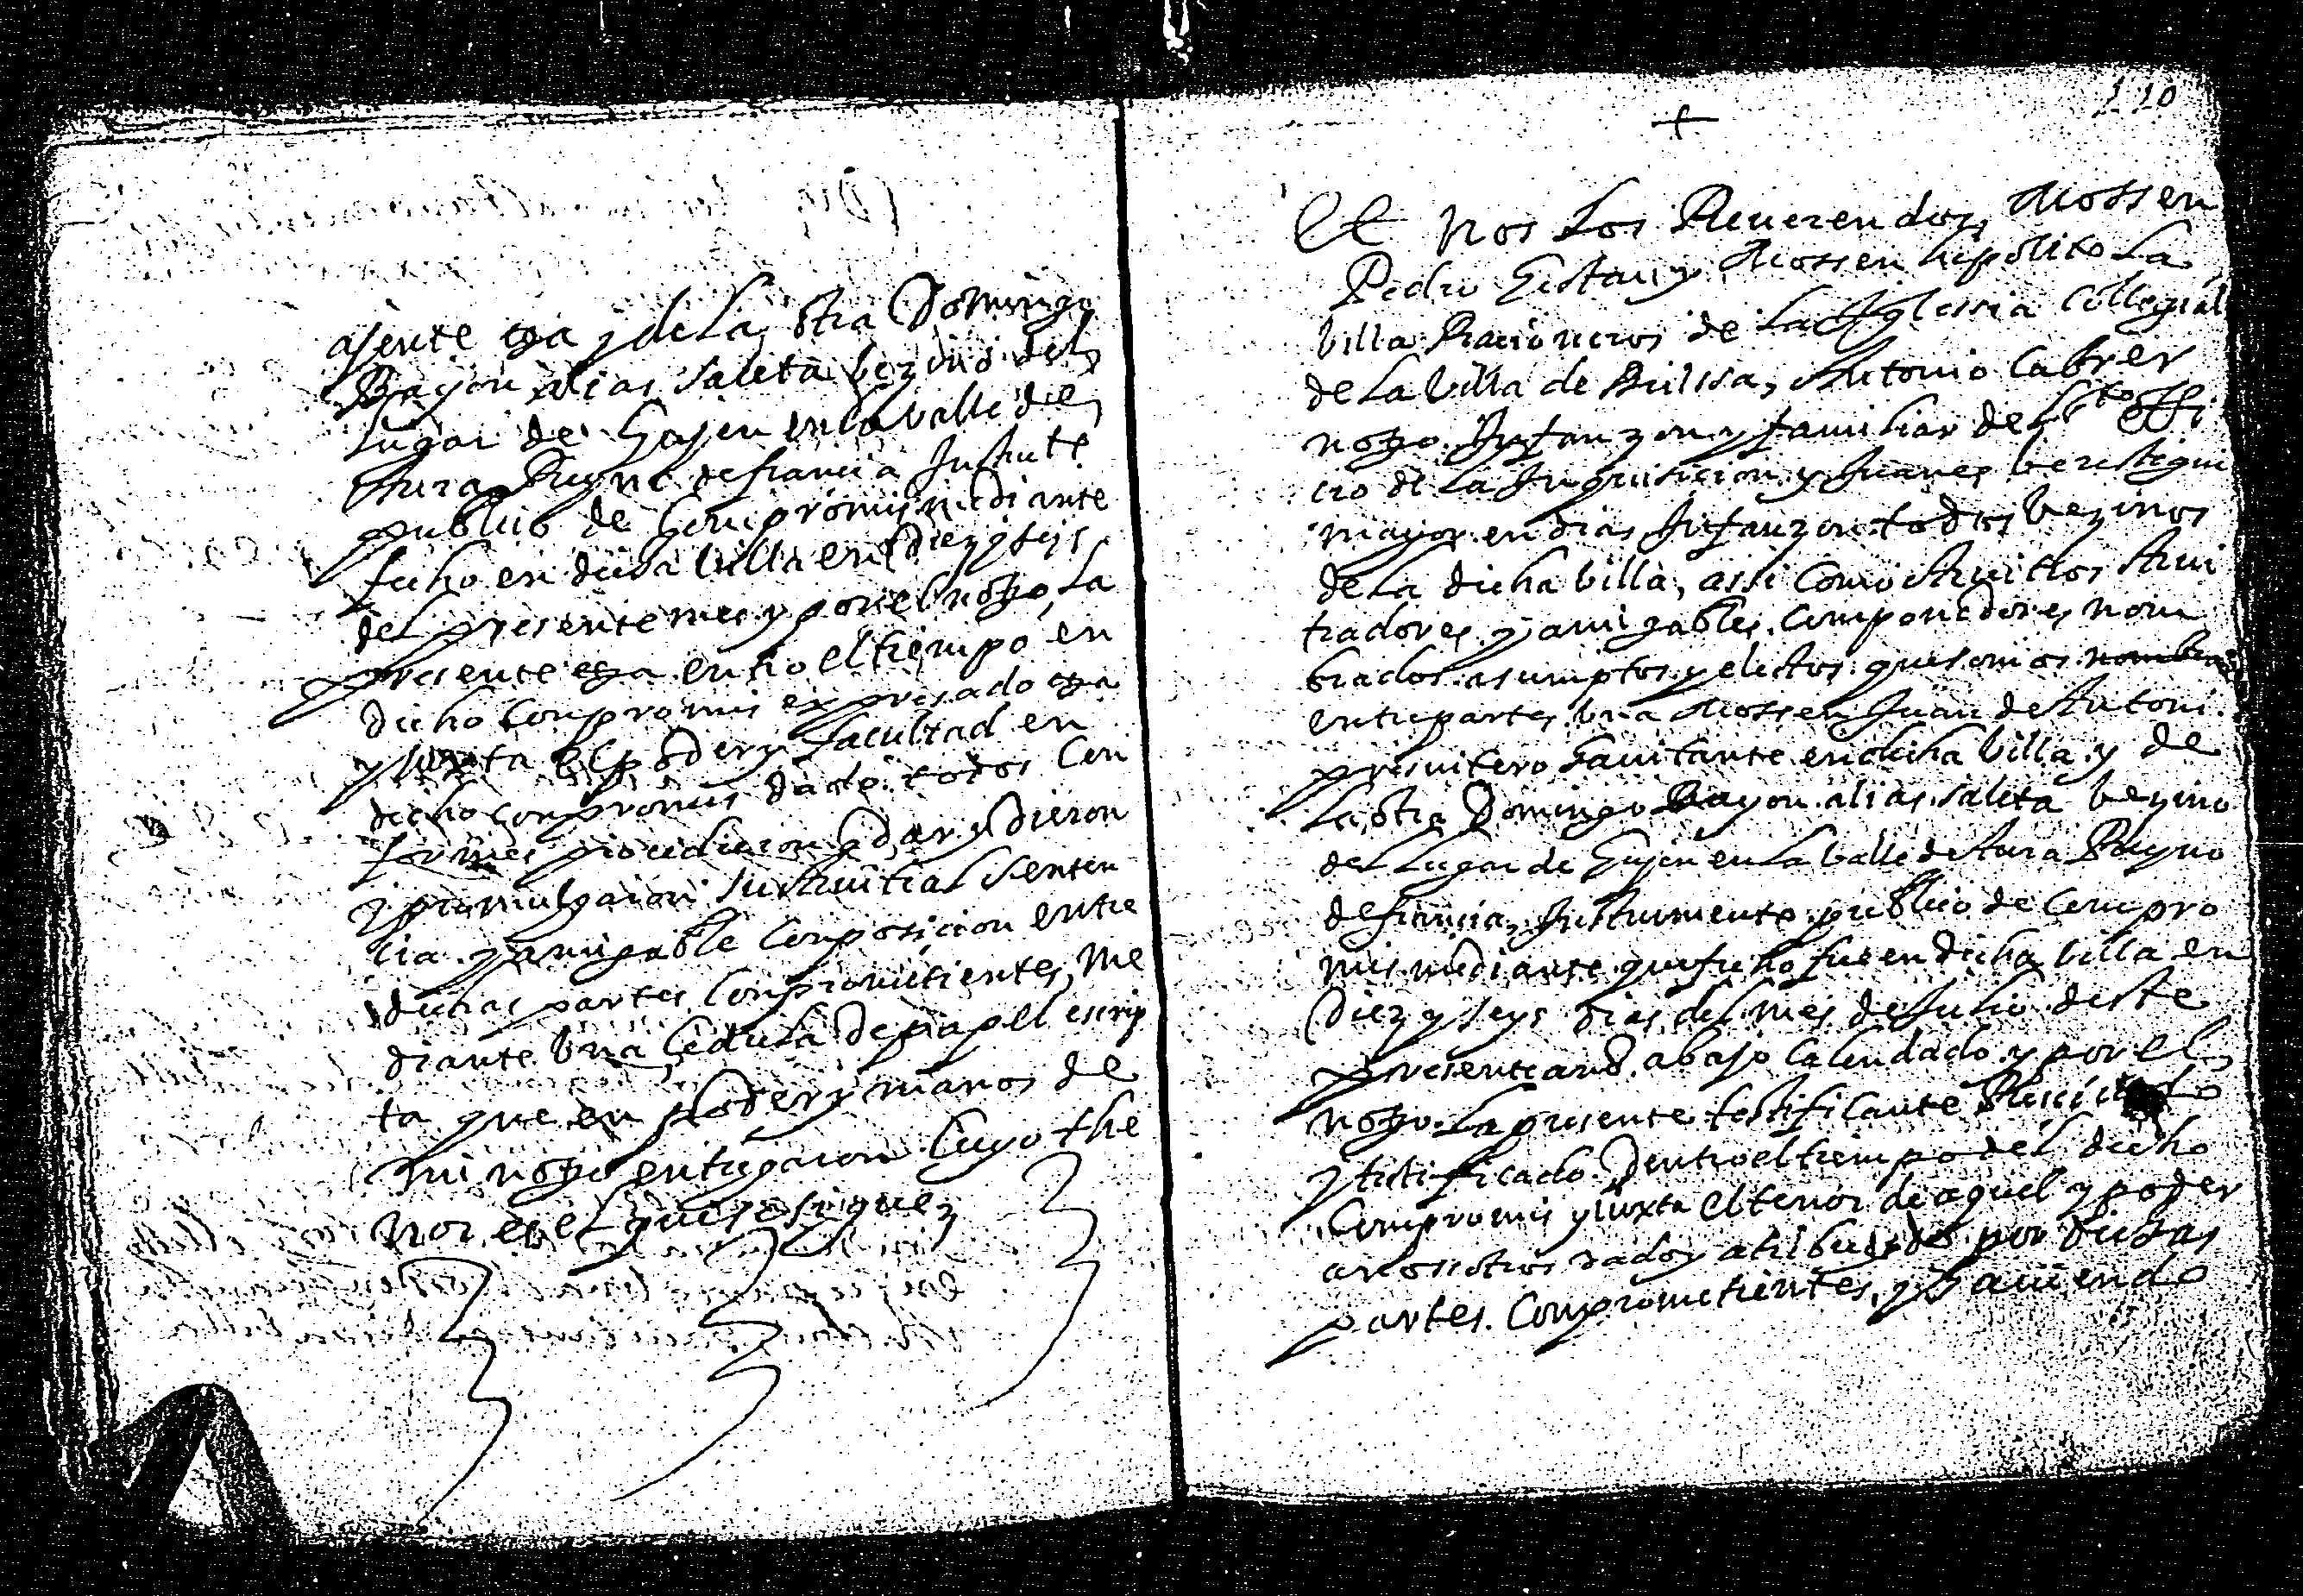 assente era y de la otra Domingo
Bayon alias Saleta vezino del
lugar de Gusen en la valle de
Aura Reyno de francia Instrute
publico de Compromis mediante
fecho en dicha villa en Diez y seys
del presente mes y por el noto la
presente era entro el tiempo en
dicho Compromis expresado era
y iuxta el poder y facultad en
dicho compromis dado todos Con
formes procedieron a dar y dieron
y promulgaron su Arvitral senten
cia y amigable Composicion entre
dichas partes Comprometientes me
diante una Cedula de papel escrip
ta que en poder y manos de
mi noto entregaron Cuyo the
nor es el que se sigue
110
Et Nos Los Reuerendos Mossen
Pedro Gistau y Mossen hipolito La
billa Racioneros de La Yglessia Collegial
de La billa de Bielssa, Antonio Cabrer
noto Infanzon y familiar del Sto Offi
cio de La Inquisicion y Juanes berestegui
mayor en dias Infanzon todos bezinos
de La dicha billa, assi Como Arvitros Arvi
tradores y amigables Componedores nom
brados asumptos y electos que somos nombra
entre partes una Mossen Juan de Antoni
presuitero havitante en dicha billa y de
La otra Domingo Bayon alias saleta bezino
del Lugar de Gusen en La balle de Aura Reyno
de francia, Instrumento publico de Compro
mis mediante que fecho fue en dicha billa en
Diez y seys dias del mes de Julio deste
presente año abajo Calendado y por el
noto La presente testificante Reciuido
y testificado Dentro el tiempo del dicho
Compromis y iuxta el tenor de aquel y poder
a nossotros dado y atribuydo por dichas
partes Comprometientes, y haviendo